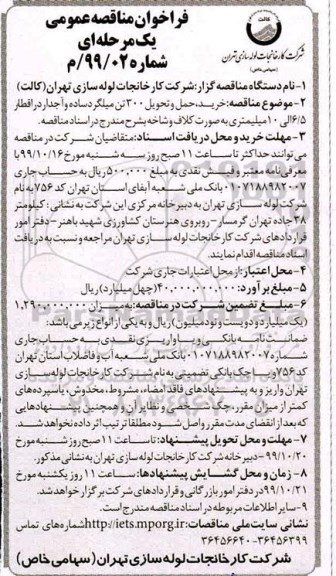 کالت
شرکت کارخانجات لوله سازی تهران
(سهامی خاص)
فراخوان مناقصه عمومی
یک مرحله ای
شماره ۹۹/۰۲/م
۱- نام دستگاه مناقصه گزار: شرکت کارخانجات لوله سازی تهران (کالت)
۲- موضوع مناقصه: خرید، حمل و تحویل ۳۰۰ تن میلگرد ساده و آجدار در اقطار
۶/۵ الی ۱۰ میلیمتری به صورت کلاف و شاخه بشرح مندرج در اسناد مناقصه.
۳- مهلت خرید و محل دریافت اسناد: متقاضیان شرکت در مناقصه
می توانند حداکثر تا ساعت ۱۱ صبح روز سه شنبه مورخ ۹۹/۱۰/۱۶ با
معرفی نامه معتبر و فیش نقدی به مبلغ ۵۰۰٫۰۰۰ ریال به حساب جاری
۰۱۰۷۱۸۸۹۸۲۰۰۷ بانک ملی شعبه آبفای استان تهران کد ۷۵۶ به نام
شرکت لوله سازی تهران به دبیرخانه مرکزی این شرکت به نشانی: کیلومتر
۳۸ جاده تهران گرمسار - روبروی هنرستان کشاورزی شهید باهنر - دفتر امور
قراردادهای شرکت کارخانجات لوله سازی تهران مراجعه و نسبت به دریافت
اسناد مناقصه اقدام نمایند.
۴- محل اعتبار: از محل اعتبارات جاری شرکت
۵- مبلغ برآورد: ۴۰٫۰۰۰٫۰۰۰٫۰۰۰ (چهل میلیارد) ریال
۶- مبلغ تضمین شرکت در مناقصه: به میزان ۱٫۲۹۰٫۰۰۰٫۰۰۰
(یک میلیارد و دویست و نود میلیون) ریال و به یکی از انواع زیر می باشد:
ضمانت نامه بانکی و یا واریز نقدی به حساب جاری
شماره ۰۱۰۷۱۱۸۸۹۸۲۰۰۷ بانک ملی شعبه آب و فاضلاب استان تهران
کد ۷۵۶ و یا چک بانکی تضمینی به نام شرکت کارخانجات لوله سازی
تهران واریز و به پیشنهادهای فاقد امضاء، مشروط، مخدوش، یا سپرده های
کمتر از میزان مقرر، چک شخصی و نظایر آن و همچنین پیشنهادهایی
که بعد از انقضای مدت مقرر واصل شود مطلقا ترتیب اثر داده نخواهد شد.
۷- مهلت و محل تحویل پیشنهاد: تا ساعت ۱۱ صبح روز شنبه مورخ
۹۹/۱۰/۲۰- دبیرخانه شرکت کارخانجات لوله سازی تهران به نشانی مذکور.
۸- زمان و محل گشایش پیشنهادها: ساعت ۱۱ روز یکشنبه مورخ
۹۹/۱۰/۲۱ در دفتر امور بازرگانی و قراردادهای شرکت برگزار خواهد شد.
۹- سایر اطلاعات مربوطه در اسناد مناقصه مندرج است.
نشانی سایت ملی مناقصات: http://iets.mporg.ir شماره های تماس
۳۶۴۵۶۳۹۹-۳۶۴۵۶۶۴۰
شرکت کارخانجات لوله سازی تهران (سهامی خاص)